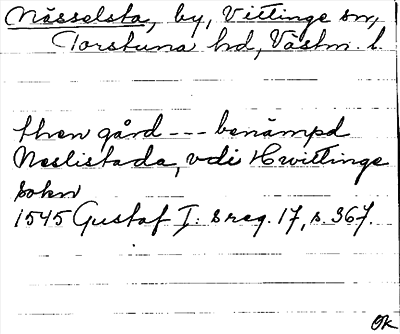 Nässelsta, by, Vittinge sn,
Torstuna hd, Västm. l.
then gård --- benämpd
Neslistada, vdi Hwittinge
sokn
1545 Gustaf I: s reg. 17, s. 367.
OK